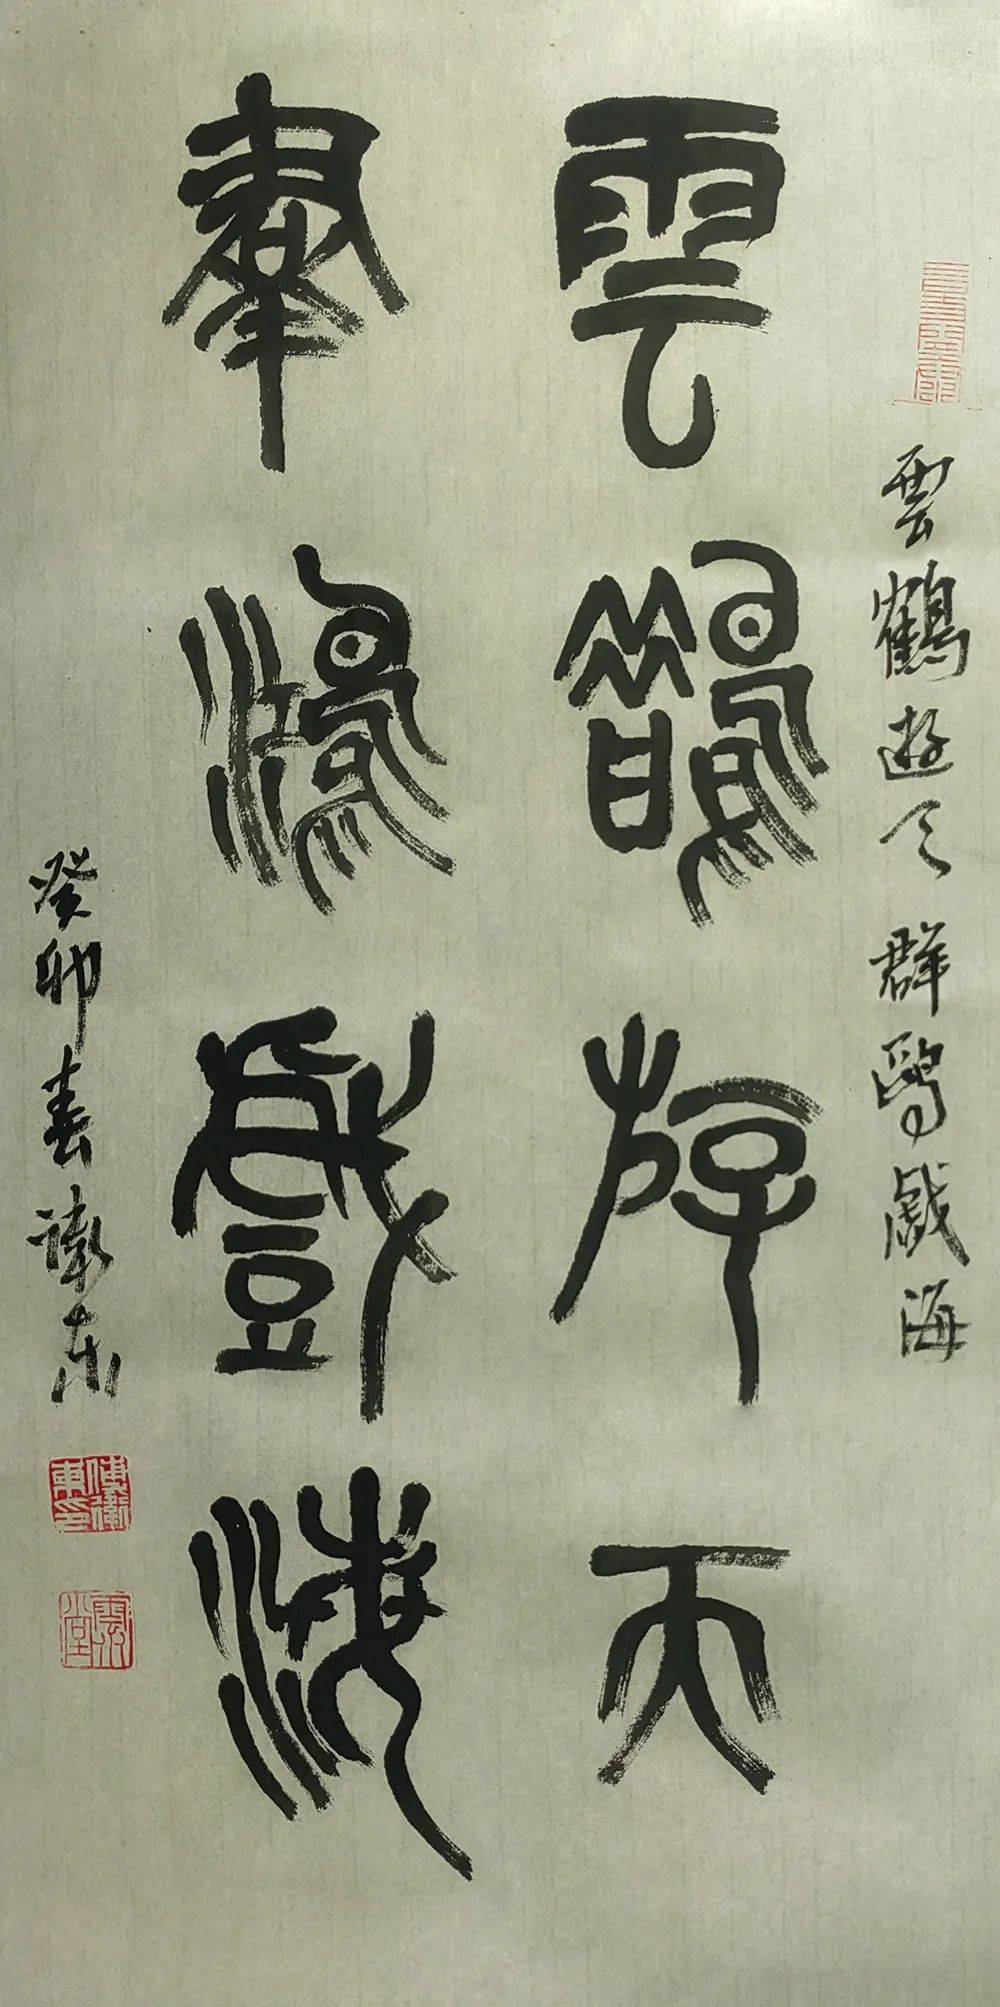 雲鶴游天
羣鴻戲海
雲鶴遊天 群鴻戲海
癸卯春 衛東